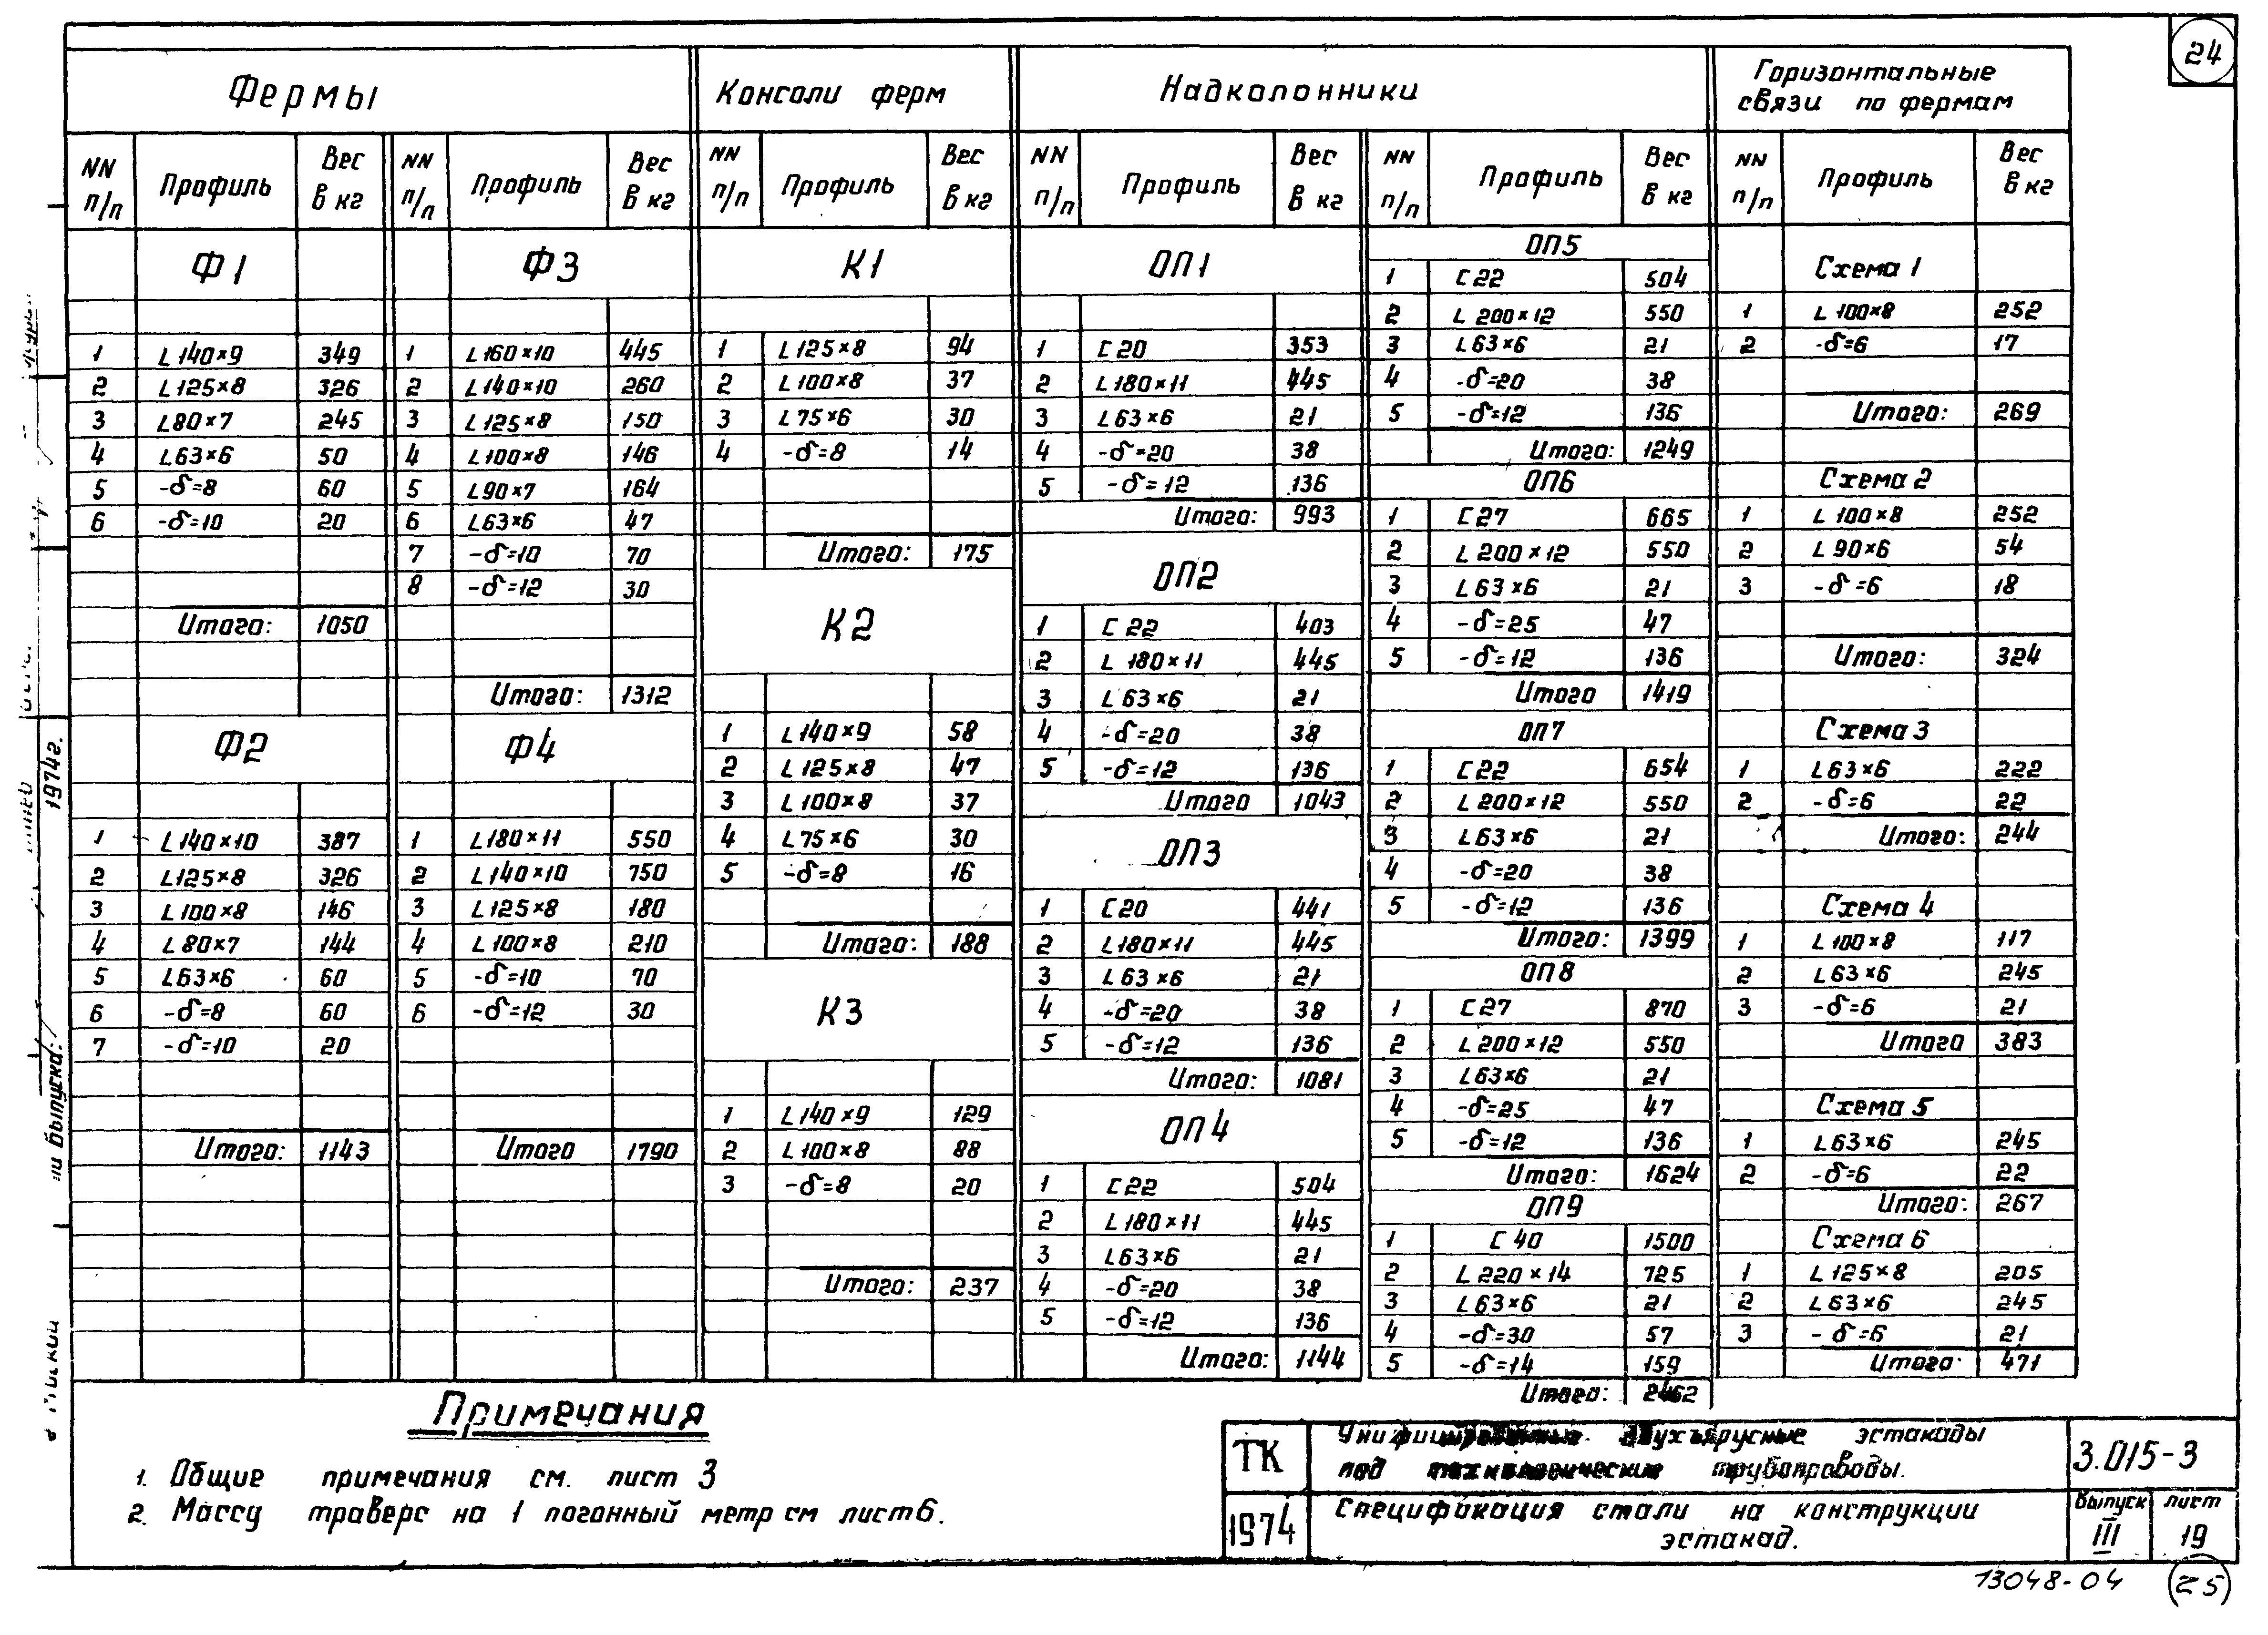 24
Фермы
Консоли ферм
Надколонники
Горизонтальные
связи по фермам
NN п/п Профиль Вес в кг
NN п/п Профиль Вес в кг
NN п/п Профиль Вес в кг
NN п/п Профиль Вес в кг
NN п/п Профиль Вес в кг
NN п/п Профиль Вес в кг
Ф1
1 L140×9 349
2 L125×8 326
3 L80×7 245
4 L63×6 50
5 -δ=8 60
6 -δ=10 20
Итого: 1050
Ф2
1 L140×10 387
2 L125×8 326
3 L100×8 146
4 L80×7 144
5 L63×6 60
6 -δ=8 60
7 -δ=10 20
Итого: 1143
Ф3
1 L160×10 445
2 L140×10 260
3 L125×8 150
4 L100×8 146
5 L90×7 164
6 L63×6 47
7 -δ=10 70
8 -δ=12 30
Итого: 1312
Ф4
1 L180×11 550
2 L140×10 750
3 L125×8 180
4 L100×8 210
5 -δ=10 70
6 -δ=12 30
Итого 1790
К1
1 L125×8 94
2 L100×8 37
3 L75×6 30
4 -δ=8 14
Итого: 175
К2
1 L140×9 58
2 L125×8 47
3 L100×8 37
4 L75×6 30
5 -δ=8 16
Итого: 188
К3
1 L140×9 129
2 L100×8 88
3 -δ=8 20
Итого: 237
ОП1
1 С20 353
2 L180×11 445
3 L63×6 21
4 -δ=20 38
5 -δ=12 136
Итого: 993
ОП2
1 С22 403
2 L180×11 445
3 L63×6 21
4 -δ=20 38
5 -δ=12 136
Итого 1043
ОП3
1 С20 441
2 L180×11 445
3 L63×6 21
4 -δ=20 38
5 -δ=12 136
Итого: 1081
ОП4
1 С22 504
2 L180×11 445
3 L63×6 21
4 -δ=20 38
5 -δ=12 136
Итого: 1144
ОП5
1 С22 504
2 L200×12 550
3 L63×6 21
4 -δ=20 38
5 -δ=12 136
Итого: 1249
ОП6
1 С27 665
2 L200×12 550
3 L63×6 21
4 -δ=25 47
5 -δ=12 136
Итого 1419
ОП7
1 С22 654
2 L200×12 550
3 L63×6 21
4 -δ=20 38
5 -δ=12 136
Итого: 1399
ОП8
1 С27 870
2 L200×12 550
3 L63×6 21
4 -δ=25 47
5 -δ=12 136
Итого: 1624
ОП9
1 С40 1500
2 L220×14 725
3 L63×6 21
4 -δ=30 57
5 -δ=14 159
Итого: 2462
Схема 1
1 L100×8 252
2 -δ=6 17
Итого: 269
Схема 2
1 L100×8 252
2 L90×6 54
3 -δ=6 18
Итого: 324
Схема 3
1 L63×6 222
2 -δ=6 22
Итого: 244
Схема 4
1 L100×8 117
2 L63×6 245
3 -δ=6 21
Итого 383
Схема 5
1 L63×6 245
2 -δ=6 22
Итого: 267
Схема 6
1 L125×8 205
2 L63×6 245
3 -δ=6 21
Итого: 471
Примечания
1. Общие примечания см. лист 3
2. Массу траверс на 1 погонный метр см лист 6.
ТК
1974
Унифицированные двухъярусные эстакады
под технологические трубопроводы.
Спецификация стали на конструкции
эстакад.
3.015-3
Выпуск
III
лист
19
13048-04
25
1974г.
выпуска: